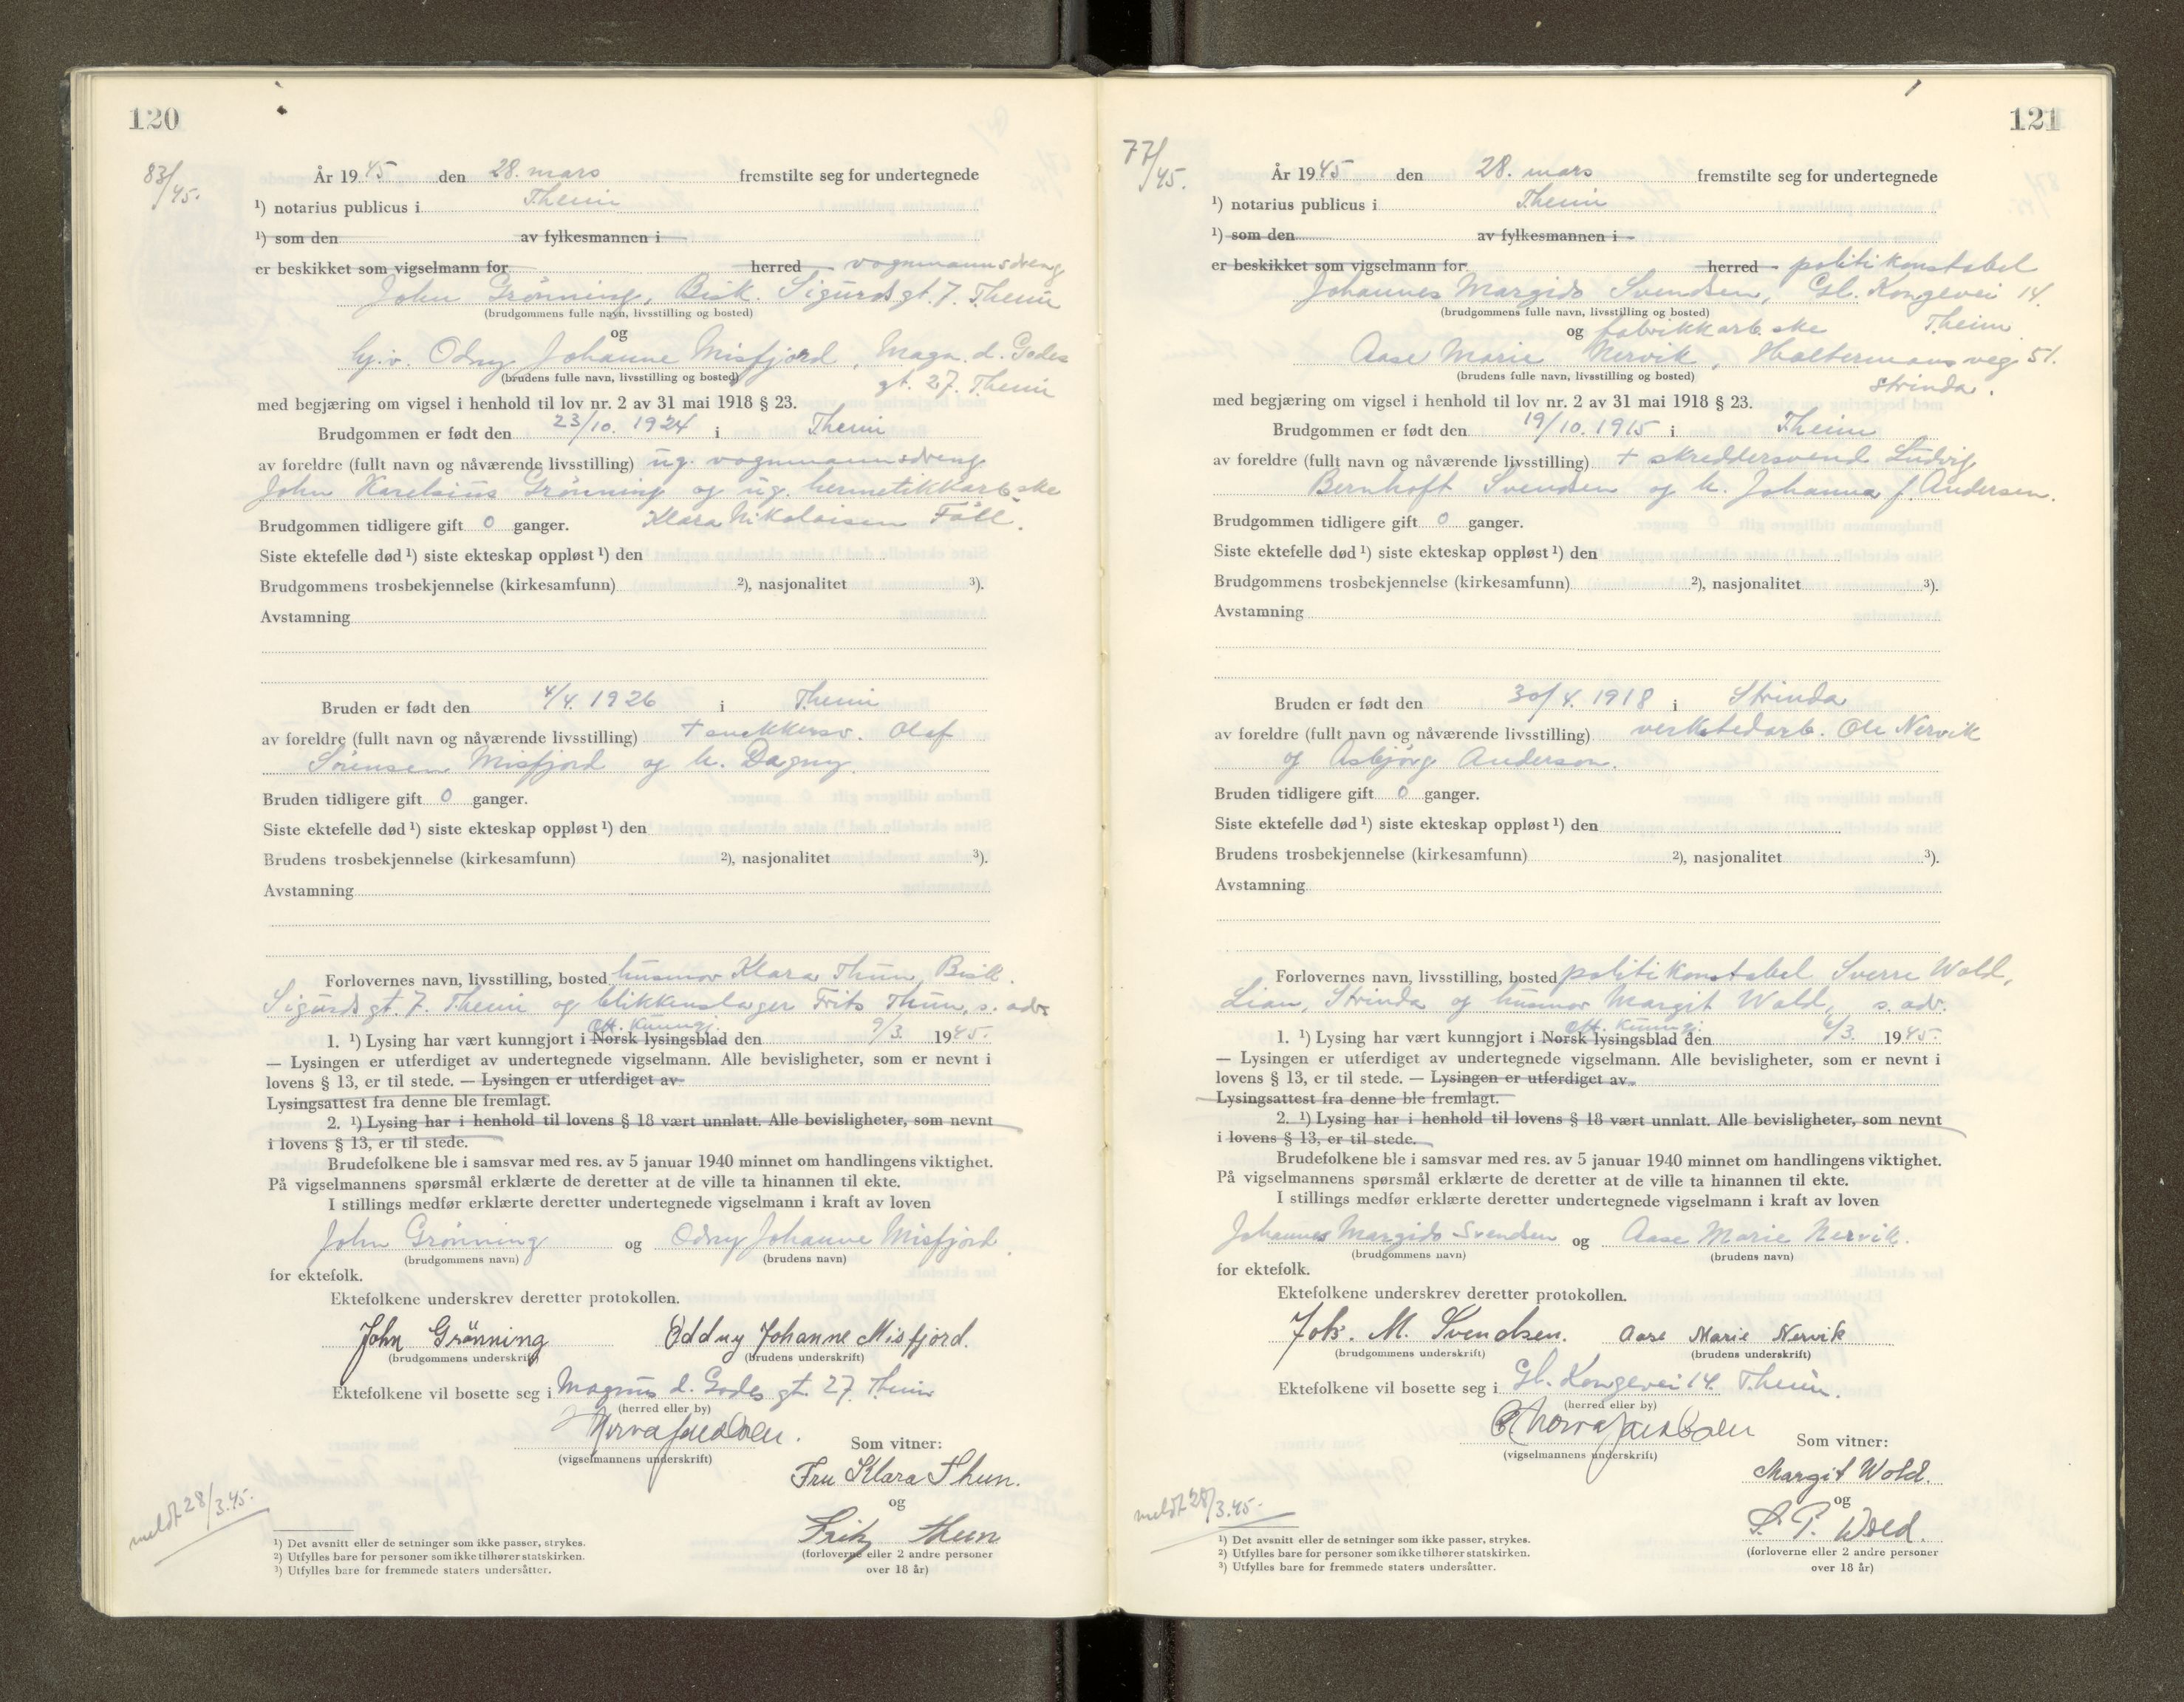 120
83/45.
År 1945 den 28. mars fremstilte seg for undertegnede
¹) notarius publicus i Theim
¹) som den av fylkesmannen i
er beskikket som vigselmann for herred vognmannsdreng
John Grönning, Bisk. Sigurds gt. 7. Theim
(brudgommens fulle navn, livsstilling og bosted)
og
hj.v. Odny Johanne Misfjord, Magn. d. Godes
(brudens fulle navn, livsstilling og bosted) gt. 27. Theim
med begjæring om vigsel i henhold til lov nr. 2 av 31 mai 1918 § 23.
Brudgommen er født den 23/10. 1924 i Theim
av foreldre (fullt navn og nåværende livsstilling) ug. vognmannsdreng
John Karelius Grönning og ug. hermetikkarb.ske
Brudgommen tidligere gift 0 ganger. Klara Nikolaisen
Siste ektefelle død ¹) siste ekteskap oppløst ¹) den
Brudgommens trosbekjennelse (kirkesamfunn) ²), nasjonalitet ³).
Avstamning
Bruden er født den 4/4. 1926 i Theim
av foreldre (fullt navn og nåværende livsstilling) + snekkersv. Olaf
Sörensen Misfjord og h. Dagny.
Bruden tidligere gift 0 ganger.
Siste ektefelle død ¹) siste ekteskap oppløst ¹) den
Brudens trosbekjennelse (kirkesamfunn) ²), nasjonalitet ³).
Avstamning
Forlovernes navn, livsstilling, bosted husmor Klara Thun, Bisk.
Sigurds gt. 7. Theim og blikkenslager Frits Thun, s. adr.
Off. Kunngj.
1. ¹) Lysing har vært kunngjort i Norsk lysingsblad den 9/3. 1945.
— Lysingen er utferdiget av undertegnede vigselmann. Alle bevisligheter, som er nevnt i
lovens § 13, er til stede. — Lysingen er utferdiget av
Lysingsattest fra denne ble fremlagt.
2. ¹) Lysing har i henhold til lovens § 18 vært unnlatt. Alle bevisligheter, som nevnt
i lovens § 13, er til stede.
Brudefolkene ble i samsvar med res. av 5 januar 1940 minnet om handlingens viktighet.
På vigselmannens spørsmål erklærte de deretter at de ville ta hinannen til ekte.
I stillings medfør erklærte deretter undertegnede vigselmann i kraft av loven
John Grönning og Odny Johanne Misfjord.
(brudgommens navn) (brudens navn)
for ektefolk.
Ektefolkene underskrev deretter protokollen.
John Grönning Oddny Johanne Misfjord.
(brudgommens underskrift) (brudens underskrift)
Ektefolkene vil bosette seg i Magnus d. Godes gt. 27. Theim
(herred eller by)
(vigselmannens underskrift)
Som vitner:
Fru Klara Thun.
og
Fritz Thun
(forloverne eller 2 andre personer
over 18 år)
meldt 28/3.45.
¹) Det avsnitt eller de setninger som ikke passer, strykes.
²) Utfylles bare for personer som ikke tilhører statskirken.
³) Utfylles bare for fremmede staters undersåtter.
121
77/45.
År 1945 den 28. mars fremstilte seg for undertegnede
¹) notarius publicus i Theim
¹) som den av fylkesmannen i
er beskikket som vigselmann for herred politikonstabel
Johannes Margido Svendsen, Gl. Kongevei 14.
(brudgommens fulle navn, livsstilling og bosted) Theim
og fabrikkarb.ske
Aase Marie Nervik, Haltermanns veg 51.
(brudens fulle navn, livsstilling og bosted) Strinda.
med begjæring om vigsel i henhold til lov nr. 2 av 31 mai 1918 § 23.
Brudgommen er født den 19/10. 1915 i Theim
av foreldre (fullt navn og nåværende livsstilling) + skreddersvend Ludvig
Bernhoft Svendsen og h. Johanna f. Andersen.
Brudgommen tidligere gift 0 ganger.
Siste ektefelle død ¹) siste ekteskap oppløst ¹) den
Brudgommens trosbekjennelse (kirkesamfunn) ²), nasjonalitet ³).
Avstamning
Bruden er født den 30/4. 1918 i Strinda
av foreldre (fullt navn og nåværende livsstilling) verkstedarb. Ole Nervik
og Asbjörg Anderson.
Bruden tidligere gift 0 ganger.
Siste ektefelle død ¹) siste ekteskap oppløst ¹) den
Brudens trosbekjennelse (kirkesamfunn) ²), nasjonalitet ³).
Avstamning
Forlovernes navn, livsstilling, bosted politikonstabel Sverre Wold,
Lian, Strinda og husmor Margit Wold, s. adr.
Off. Kunngj.
1. ¹) Lysing har vært kunngjort i Norsk lysingsblad den 6/3. 1945.
— Lysingen er utferdiget av undertegnede vigselmann. Alle bevisligheter, som er nevnt i
lovens § 13, er til stede. — Lysingen er utferdiget av
Lysingsattest fra denne ble fremlagt.
2. ¹) Lysing har i henhold til lovens § 18 vært unnlatt. Alle bevisligheter, som nevnt
i lovens § 13, er til stede.
Brudefolkene ble i samsvar med res. av 5 januar 1940 minnet om handlingens viktighet.
På vigselmannens spørsmål erklærte de deretter at de ville ta hinannen til ekte.
I stillings medfør erklærte deretter undertegnede vigselmann i kraft av loven
Johannes Margido Svendsen og Aase Marie Nervik.
(brudgommens navn) (brudens navn)
for ektefolk.
Ektefolkene underskrev deretter protokollen.
Johs. M. Svendsen. Aase Marie Nervik
(brudgommens underskrift) (brudens underskrift)
Ektefolkene vil bosette seg i Gl. Kongevei 14. Theim.
(herred eller by)
(vigselmannens underskrift)
Som vitner:
Margit Wold.
og
S. P. Wold.
(forloverne eller 2 andre personer
over 18 år)
meldt 28/3.45.
¹) Det avsnitt eller de setninger som ikke passer, strykes.
²) Utfylles bare for personer som ikke tilhører statskirken.
³) Utfylles bare for fremmede staters undersåtter.